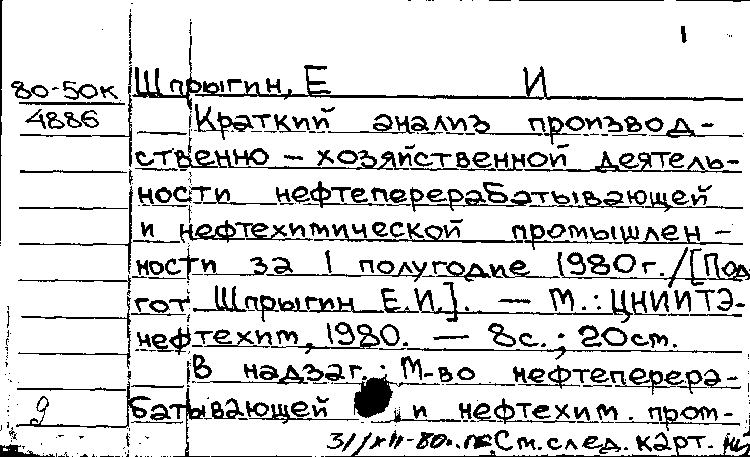 1
80-50к Шпрыгин, Е И
4886 Краткий анализ производ-
ственно – хозяйственной деятель-
ности нефтеперерабатывающей
и нефтехимической промышлен-
ности за 1 полугодие 1980г./[Под
гот. Шпрыгин Е.И.]. — М.: ЦНИИТЭ-
нефтехим, 1980. — 8с.; 20см.
В надзаг.: М-во нефтеперера-
9 батывающей и нефтехим. пром-
См.след.карт.